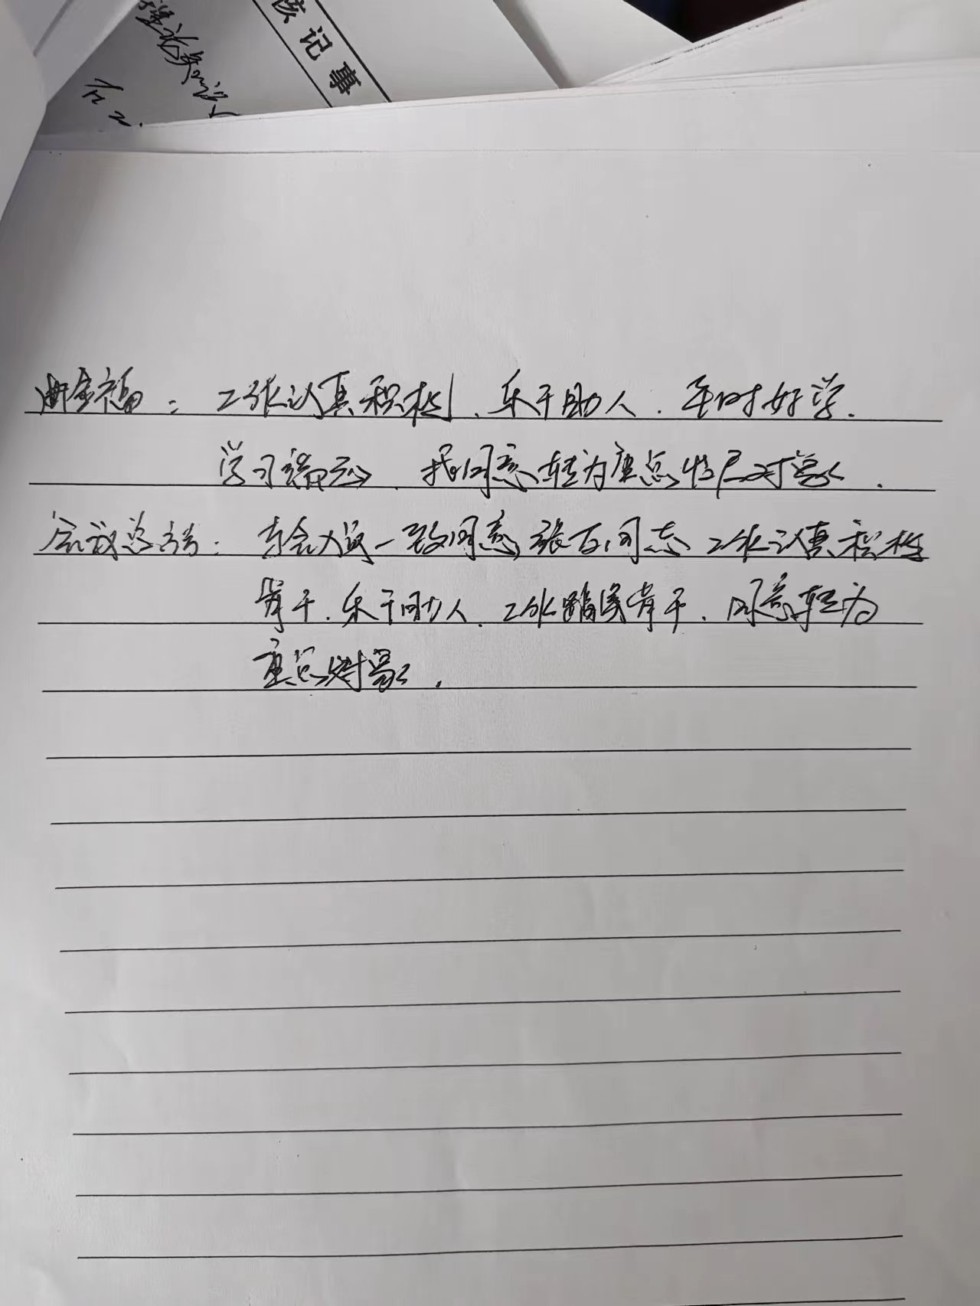 核记事
金福：工作认真积极、乐于助人、平时好学.
学习，我同意转为重点发展对象.
会议总结：与会人员一致同意张同志工作认真积极
肯干、乐于助人、工作踏实肯干，同意转为
重点对象.